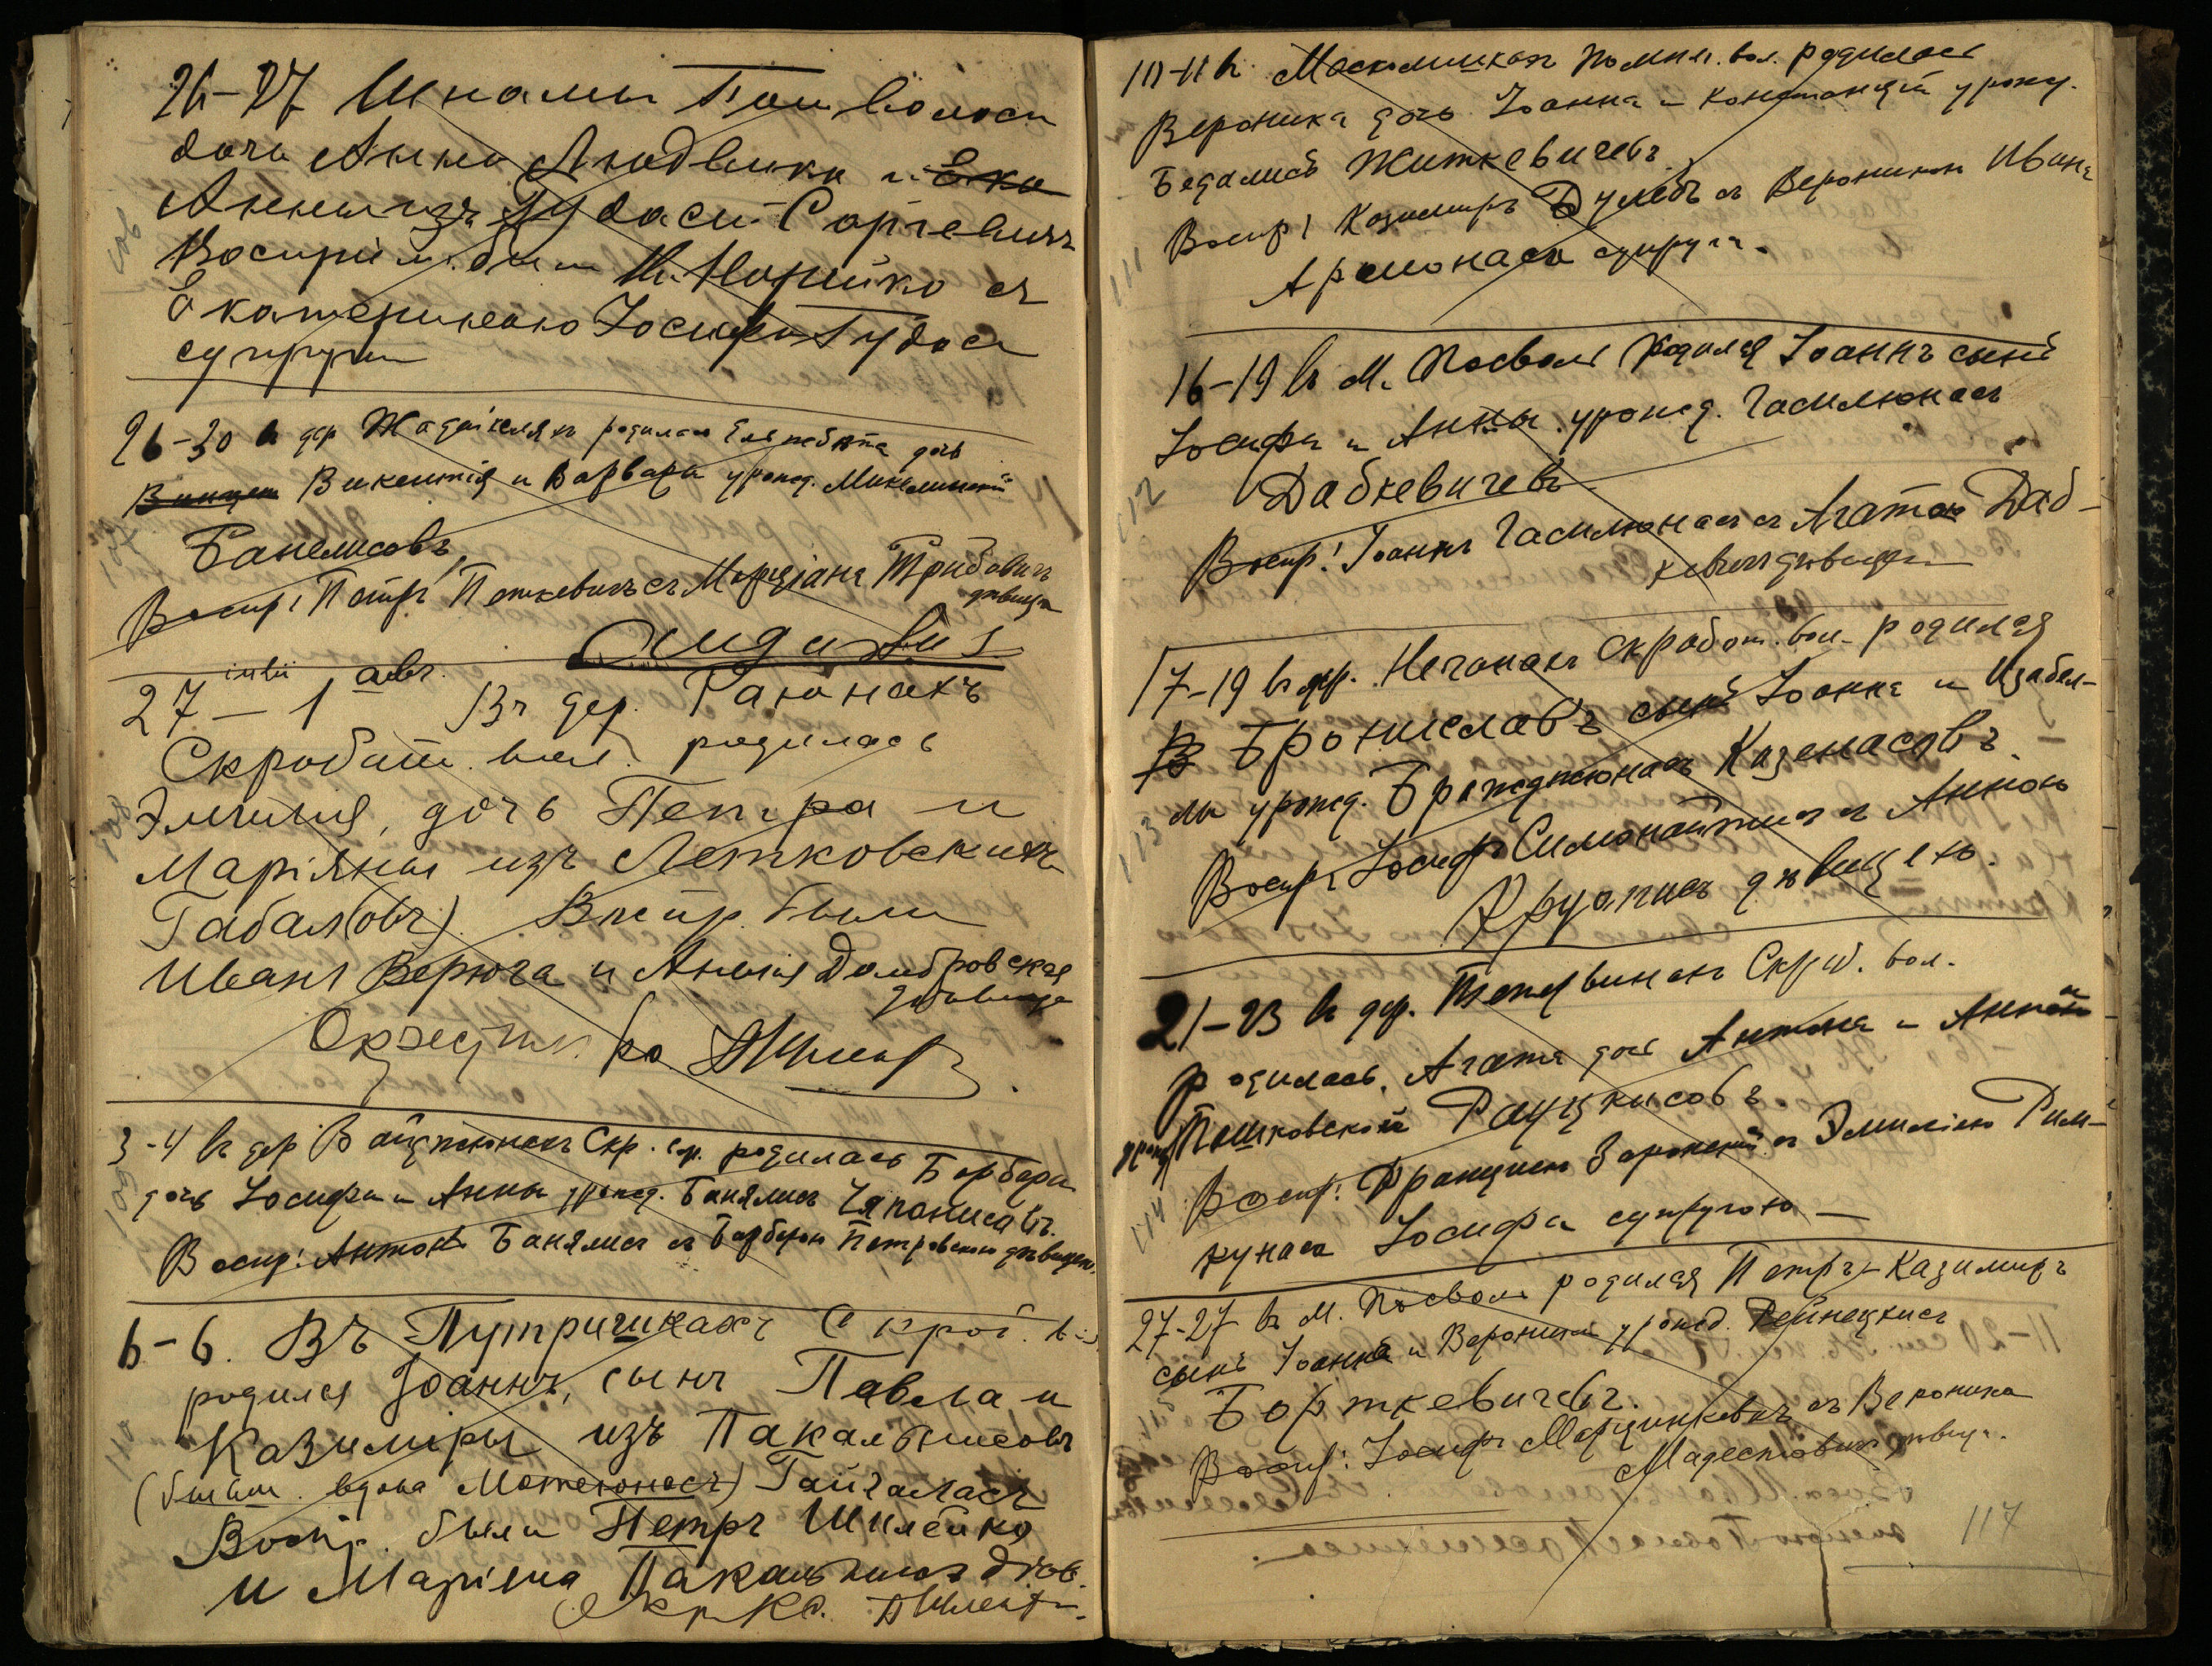 26-27 Шнамы Пош волости
дочь Анна Людвика и Ека
Анны изъ Гудаси Соргевичъ
Воспріим. были Ножейко съ
Екатериною Іосифа Гудаса
супруги
26-30 въ дер родилась Елисабета дочь
Винцен Викентія и Варвары урожд.
Банелисовъ
Воспр: Петръ Петкевичъ съ Марціана дѣвица
Augustus
27 iulii — 1 авг. Въ дер. Раюнахъ
Скробот. вол. родилась
Эмилія, дочь Петра и
Маріяны изъ Летковскихъ
Габал(овъ). Воспр. были
Иванъ Верюга и Анеля Домбровская
дѣвица
Окрестил. кс.
3-4 въ дер Вайджюнахъ Скр. родилась Барбара
дочь Іосифа и Анны урожд. Банялисъ Чапонисовъ.
Воспр: Антонъ Банялисъ съ Барборою Петровскою дѣвицею.
6-6. Въ Путришкахъ Скроб. в.
родился Іоаннъ, сынъ Павла и
Казиміры изъ Пакальнисовъ
(бывш. вдова Матеюнасъ) Гайгаласъ
Воспр. были Петръ Шилейко
и Маріяна Пакальнисъ дѣв.
Окр. Кс.
10-11 въ родилась
Вероника дочь Іоанна и Констанціи урожд.
Бедалисъ Житкевичевъ
Воспр: Казимиръ Дулебъ съ Вероникою Ивана
Арамонаса супруга.
16-19 въ м. Посволѣ родился Іоаннъ сынъ
Іосифа и Анны урожд. Гасилюнасъ
Дабкевичевъ
Воспр: Іоаннъ Гасилюнасъ съ Агатою Даб-
кевичъ дѣвицею
17-19 въ дер. Нечонахъ Скробот. вол. родился
В Брониславъ сынъ Іоанна и Изабел-
лы урожд. Бражджюнасъ Казенасовъ
Воспр: Іосифъ Симонайтисъ съ Анною
Круописъ дѣвицею.
21-23 въ дер. Тетервинахъ Скроб. вол.
родилась Агата дочь Антона и Анны
урожд Пашковской Рауцкисовъ
Воспр: Францискъ съ Эмиліею Рим-
кунаса Іосифа супругою —
27-27 въ м. Посволѣ родился Петръ-Казимиръ
сынъ Іоанна и Вероники урожд.
Борткевичевъ.
Воспр: Іосифъ Марцинкевичъ съ Вероника
дѣвиц.
117